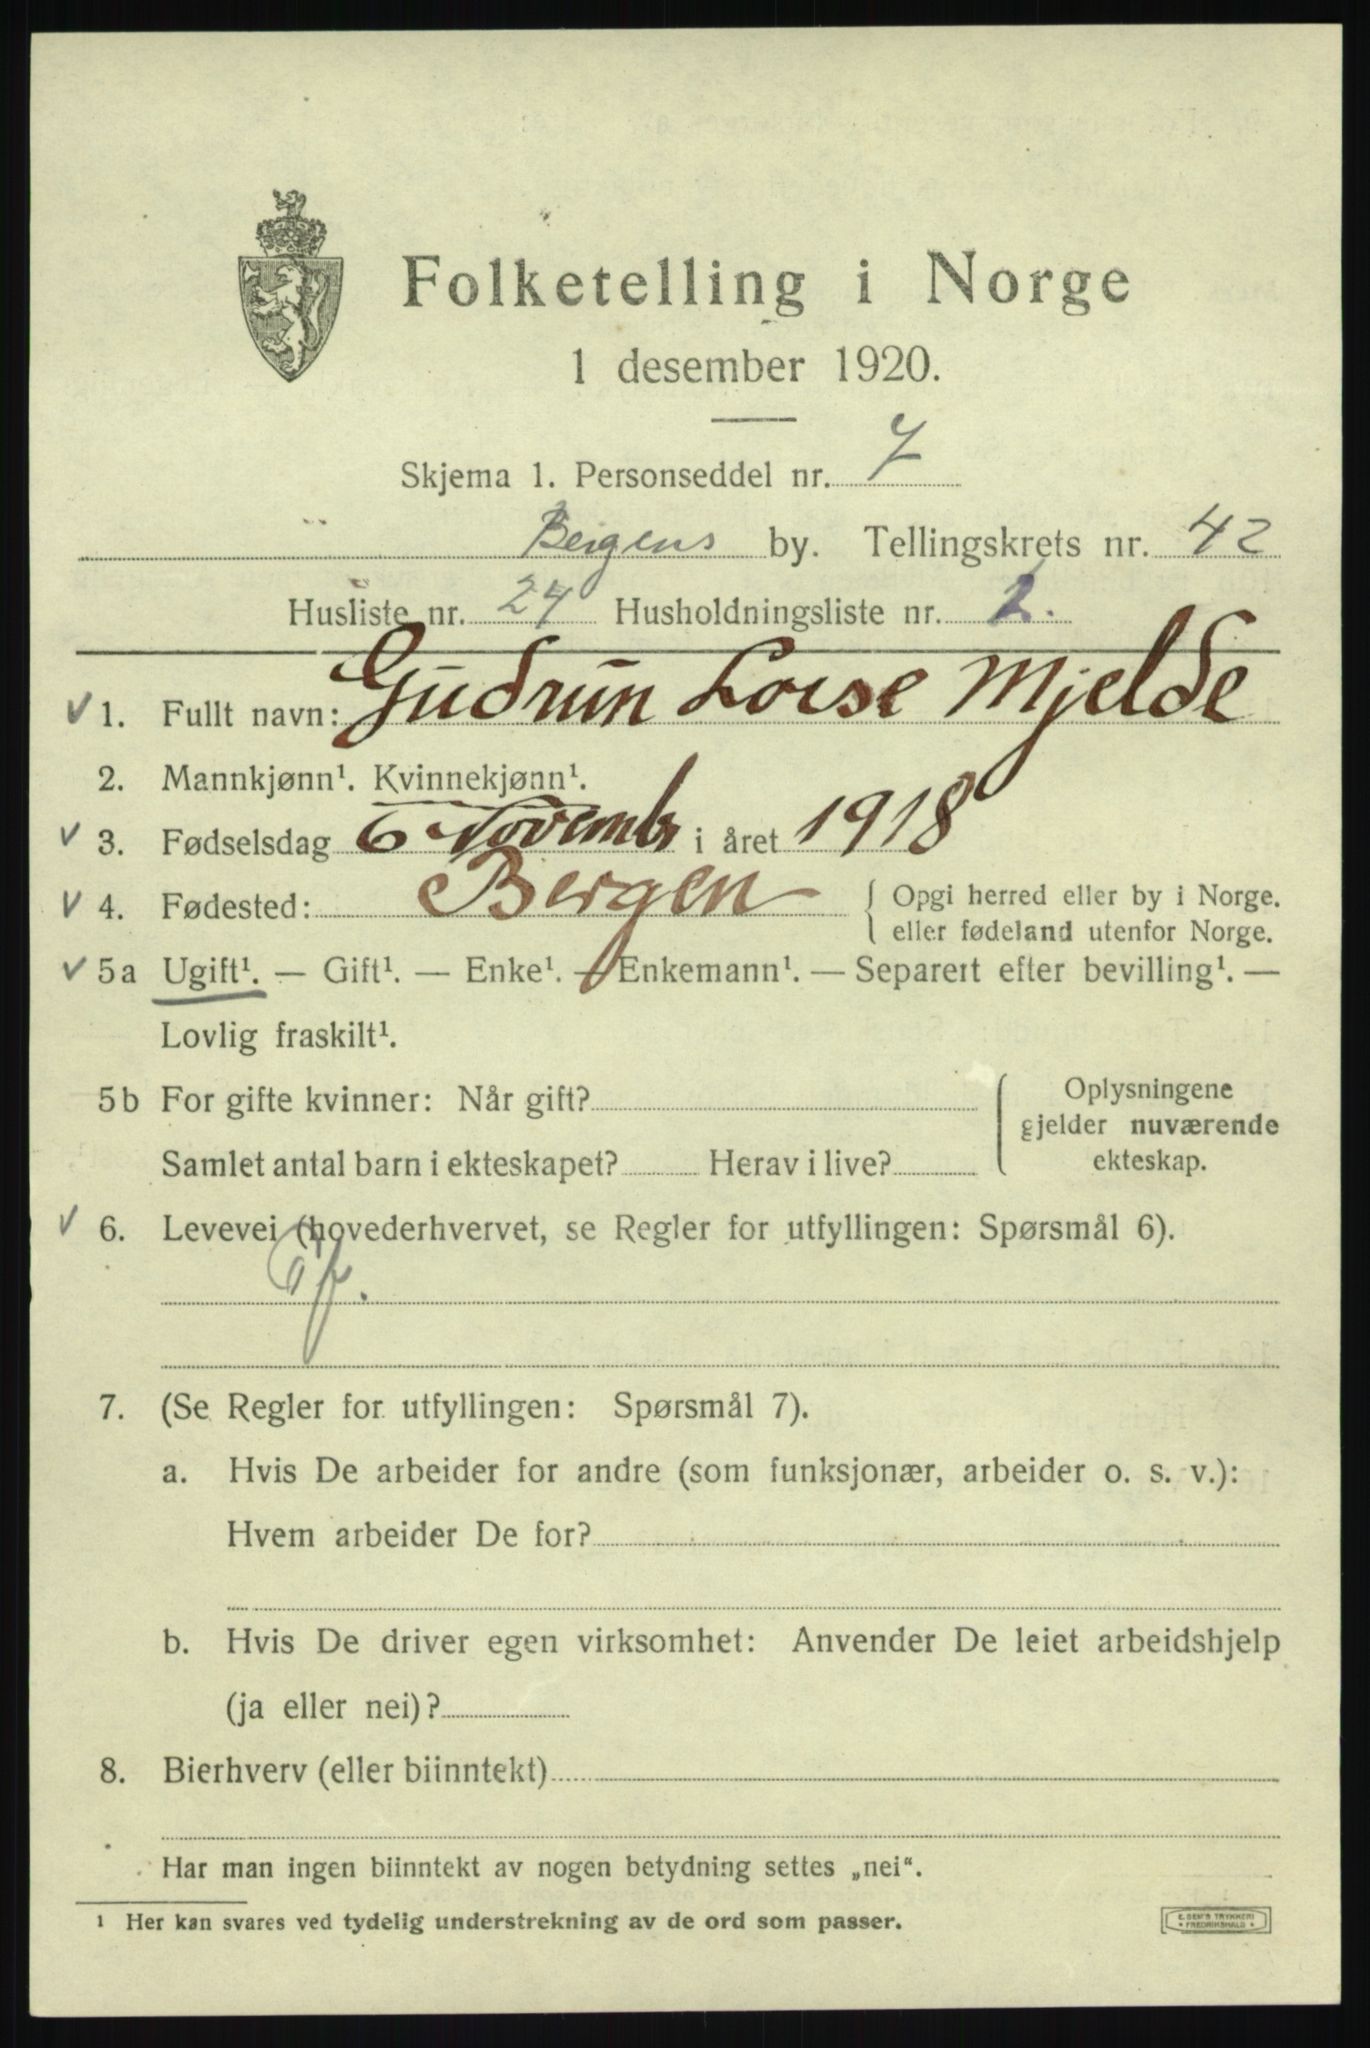 Folketelling i Norge
1 desember 1920.
Skjema 1. Personseddel nr. 7
Bergens by. Tellingskrets nr. 42
Husliste nr. 24 Husholdningsliste nr. 2.
1. Fullt navn: Gudrun Loise Mjelde
2. Mannkjønn¹. Kvinnekjønn¹.
3. Fødselsdag 6 Novembr i året 1918
4. Fødested: Bergen { Opgi herred eller by i Norge.
eller fødeland utenfor Norge.
5a Ugift¹. — Gift¹. — Enke¹. — Enkemann¹. — Separert efter bevilling¹. —
Lovlig fraskilt¹.
5b For gifte kvinner: Når gift?
Samlet antal barn i ekteskapet? Herav i live?
Oplysningene
gjelder nuværende
ekteskap.
6. Levevei (hovederhvervet, se Regler for utfyllingen: Spørsmål 6).
7. (Se Regler for utfyllingen: Spørsmål 7).
a. Hvis De arbeider for andre (som funksjonær, arbeider o. s. v.):
Hvem arbeider De for?
b. Hvis De driver egen virksomhet: Anvender De leiet arbeidshjelp
(ja eller nei)?
8. Bierhverv (eller biinntekt)
Har man ingen biinntekt av nogen betydning settes „nei“.
¹ Her kan svares ved tydelig understrekning av de ord som passer.
E. SEM'S TRYKKERI
FREDRIKSHALD